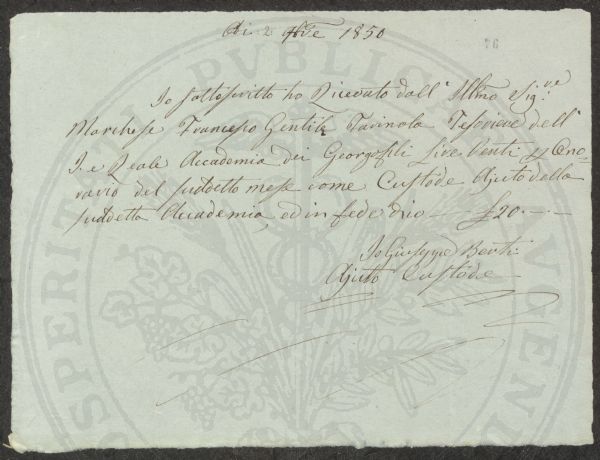 Adi 2 9bre 1850
37
Io sottoscritto ho Ricevuto dall' Illmo Sigre
Marchese Francesco Gentile Farinola Tesoriere dell'
I. e Reale Accademia dei Georgofili Lire Venti p Ono-
rario del suddetto mese come Custode Ajuto della
suddetta Accademia, ed in fede dico — £20.—.—
Io Giuseppe Berti
Ajuto Custode
PROSPERITATI PUBLICAE AUGENDAE